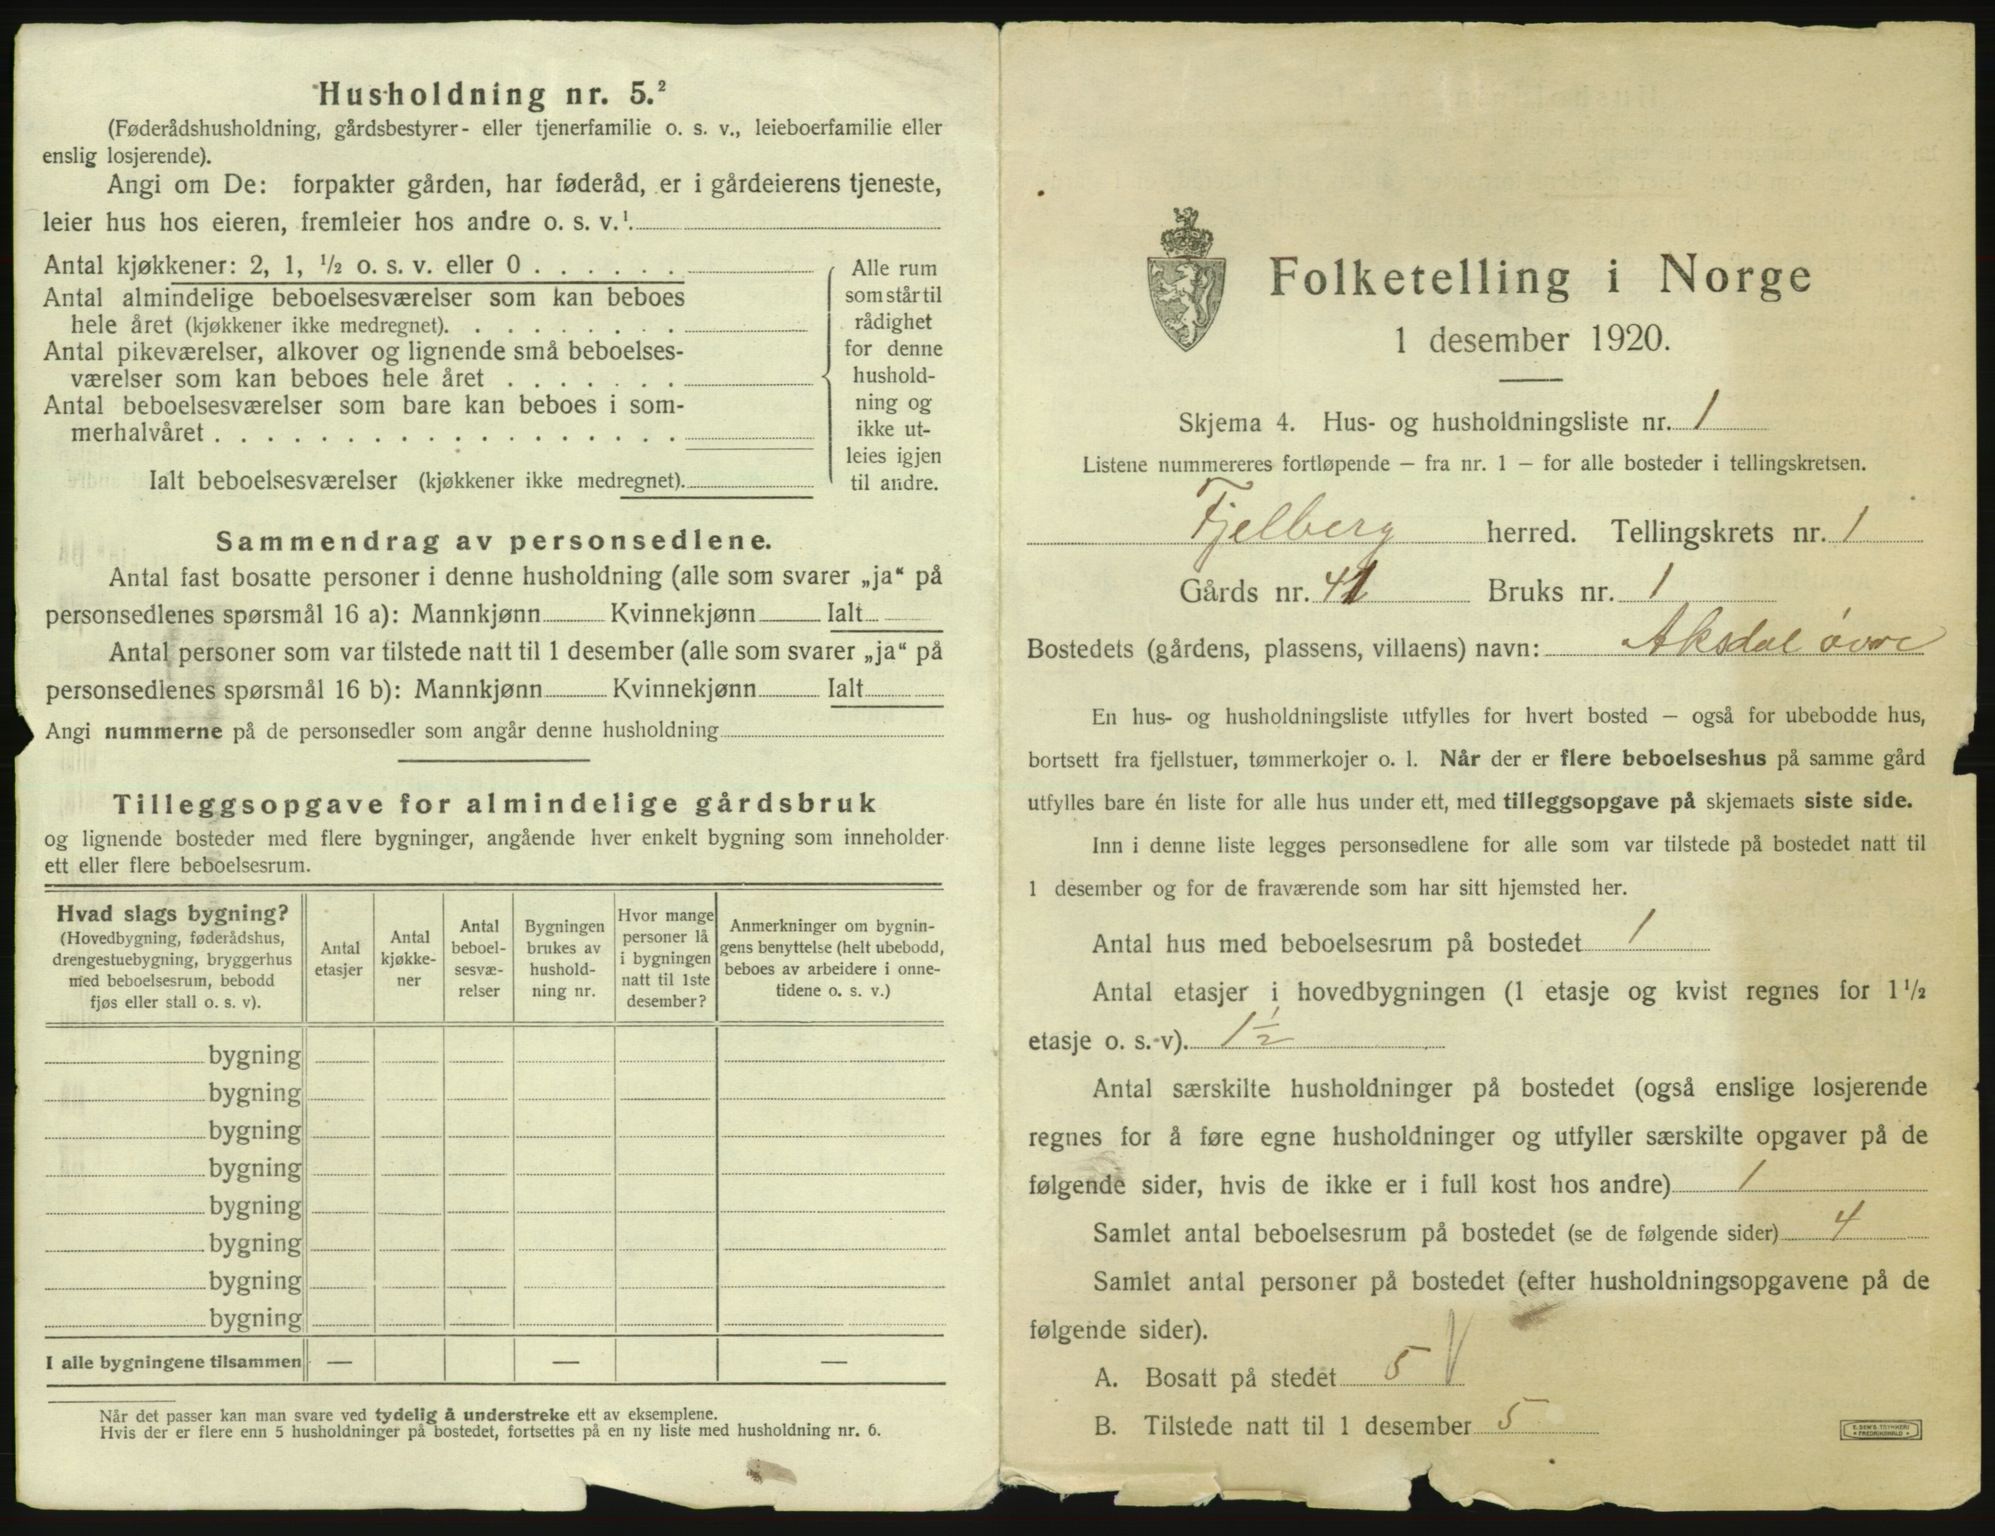 Husholdning nr. 5.²
(Føderådshusholdning, gårdsbestyrer- eller tjenerfamilie o. s. v., leieboerfamilie eller
enslig losjerende).
Angi om De: forpakter gården, har føderåd, er i gårdeierens tjeneste,
leier hus hos eieren, fremleier hos andre o. s. v.¹.
Antal kjøkkener: 2, 1, ½ o. s. v. eller 0 . . . . . .
Antal almindelige beboelsesværelser som kan beboes
hele året (kjøkkener ikke medregnet). . . . . . . . .
Antal pikeværelser, alkover og lignende små beboelses-
værelser som kan beboes hele året . . . . . . .
Antal beboelsesværelser som bare kan beboes i som-
merhalvåret . . . . . . . . . . . . . . . . . .
Ialt beboelsesværelser (kjøkkener ikke medregnet).
Alle rum
som står til
rådighet
for denne
hushold-
ning og
ikke ut-
leies igjen
til andre.
Sammendrag av personsedlene.
Antal fast bosatte personer i denne husholdning (alle som svarer „ja“ på
personsedlenes spørsmål 16 a): Mannkjønn Kvinnekjønn Ialt
Antal personer som var tilstede natt til 1 desember (alle som svarer „ja“ på
personsedlenes spørsmål 16 b): Mannkjønn Kvinnekjønn Ialt
Angi nummerne på de personsedler som angår denne husholdning
Tilleggsopgave for almindelige gårdsbruk
og lignende bosteder med flere bygninger, angående hver enkelt bygning som inneholder
ett eller flere beboelsesrum.
Hvad slags bygning?
(Hovedbygning, føderådshus,
drengestuebygning, bryggerhus
med beboelsesrum, bebodd
fjøs eller stall o. s. v).
Antal
etasjer
Antal
kjøkke-
ner
Antal
beboel-
sesvæ-
relser
Bygningen
brukes av
hushold-
ning nr.
Hvor mange
personer lå
i bygningen
natt til 1ste
desember?
Anmerkninger om bygnin-
gens benyttelse (helt ubebodd,
beboes av arbeidere i onne-
tidene o. s. v.)
bygning
bygning
bygning
bygning
bygning
bygning
bygning
bygning
I alle bygningene tilsammen — — —
Når det passer kan man svare ved tydelig å understreke ett av eksemplene.
Hvis der er flere enn 5 husholdninger på bostedet, fortsettes på en ny liste med husholdning nr. 6.
Folketelling i Norge
1 desember 1920.
Skjema 4. Hus- og husholdningsliste nr. 1
Listene nummereres fortløpende — fra nr. 1 — for alle bosteder i tellingskretsen.
Fjelberg herred. Tellingskrets nr. 1
Gårds nr. 41 Bruks nr. 1
Bostedets (gårdens, plassens, villaens) navn: Aksdal øvre
En hus- og husholdningsliste utfylles for hvert bosted — også for ubebodde hus,
bortsett fra fjellstuer, tømmerkojer o. l. Når der er flere beboelseshus på samme gård
utfylles bare én liste for alle hus under ett, med tilleggsopgave på skjemaets siste side.
Inn i denne liste legges personsedlene for alle som var tilstede på bostedet natt til
1 desember og for de fraværende som har sitt hjemsted her.
Antal hus med beboelsesrum på bostedet 1
Antal etasjer i hovedbygningen (1 etasje og kvist regnes for 1½
etasje o. s. v). 1½
Antal særskilte husholdninger på bostedet (også enslige losjerende
regnes for å føre egne husholdninger og utfyller særskilte opgaver på de
følgende sider, hvis de ikke er i full kost hos andre) 1
Samlet antal beboelsesrum på bostedet (se de følgende sider) 4
Samlet antal personer på bostedet (efter husholdningsopgavene på de
følgende sider).
A. Bosatt på stedet 5
B. Tilstede natt til 1 desember 5